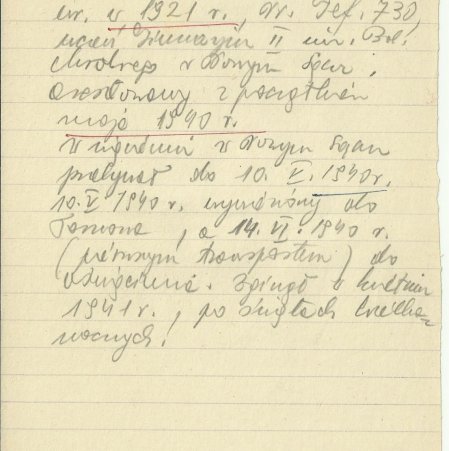 ur. w 1921 r., Nr. Tef. 730,
uczeń Gimnazjum II im. Bol.
Chrobrego w Nowym Sączu,
aresztowany z początkiem
maja 1940 r.
W więzieniu w Nowym Sączu
przebywał do 10. V. 1940 r.
10. V 1940 r. wywieziony do
Tarnowa, a 14. VI. 1940 r.
(pierwszym transportem) do
Oświęcimia. Zginął w kwietniu
1941 r., po świętach Wielka-
nocnych!